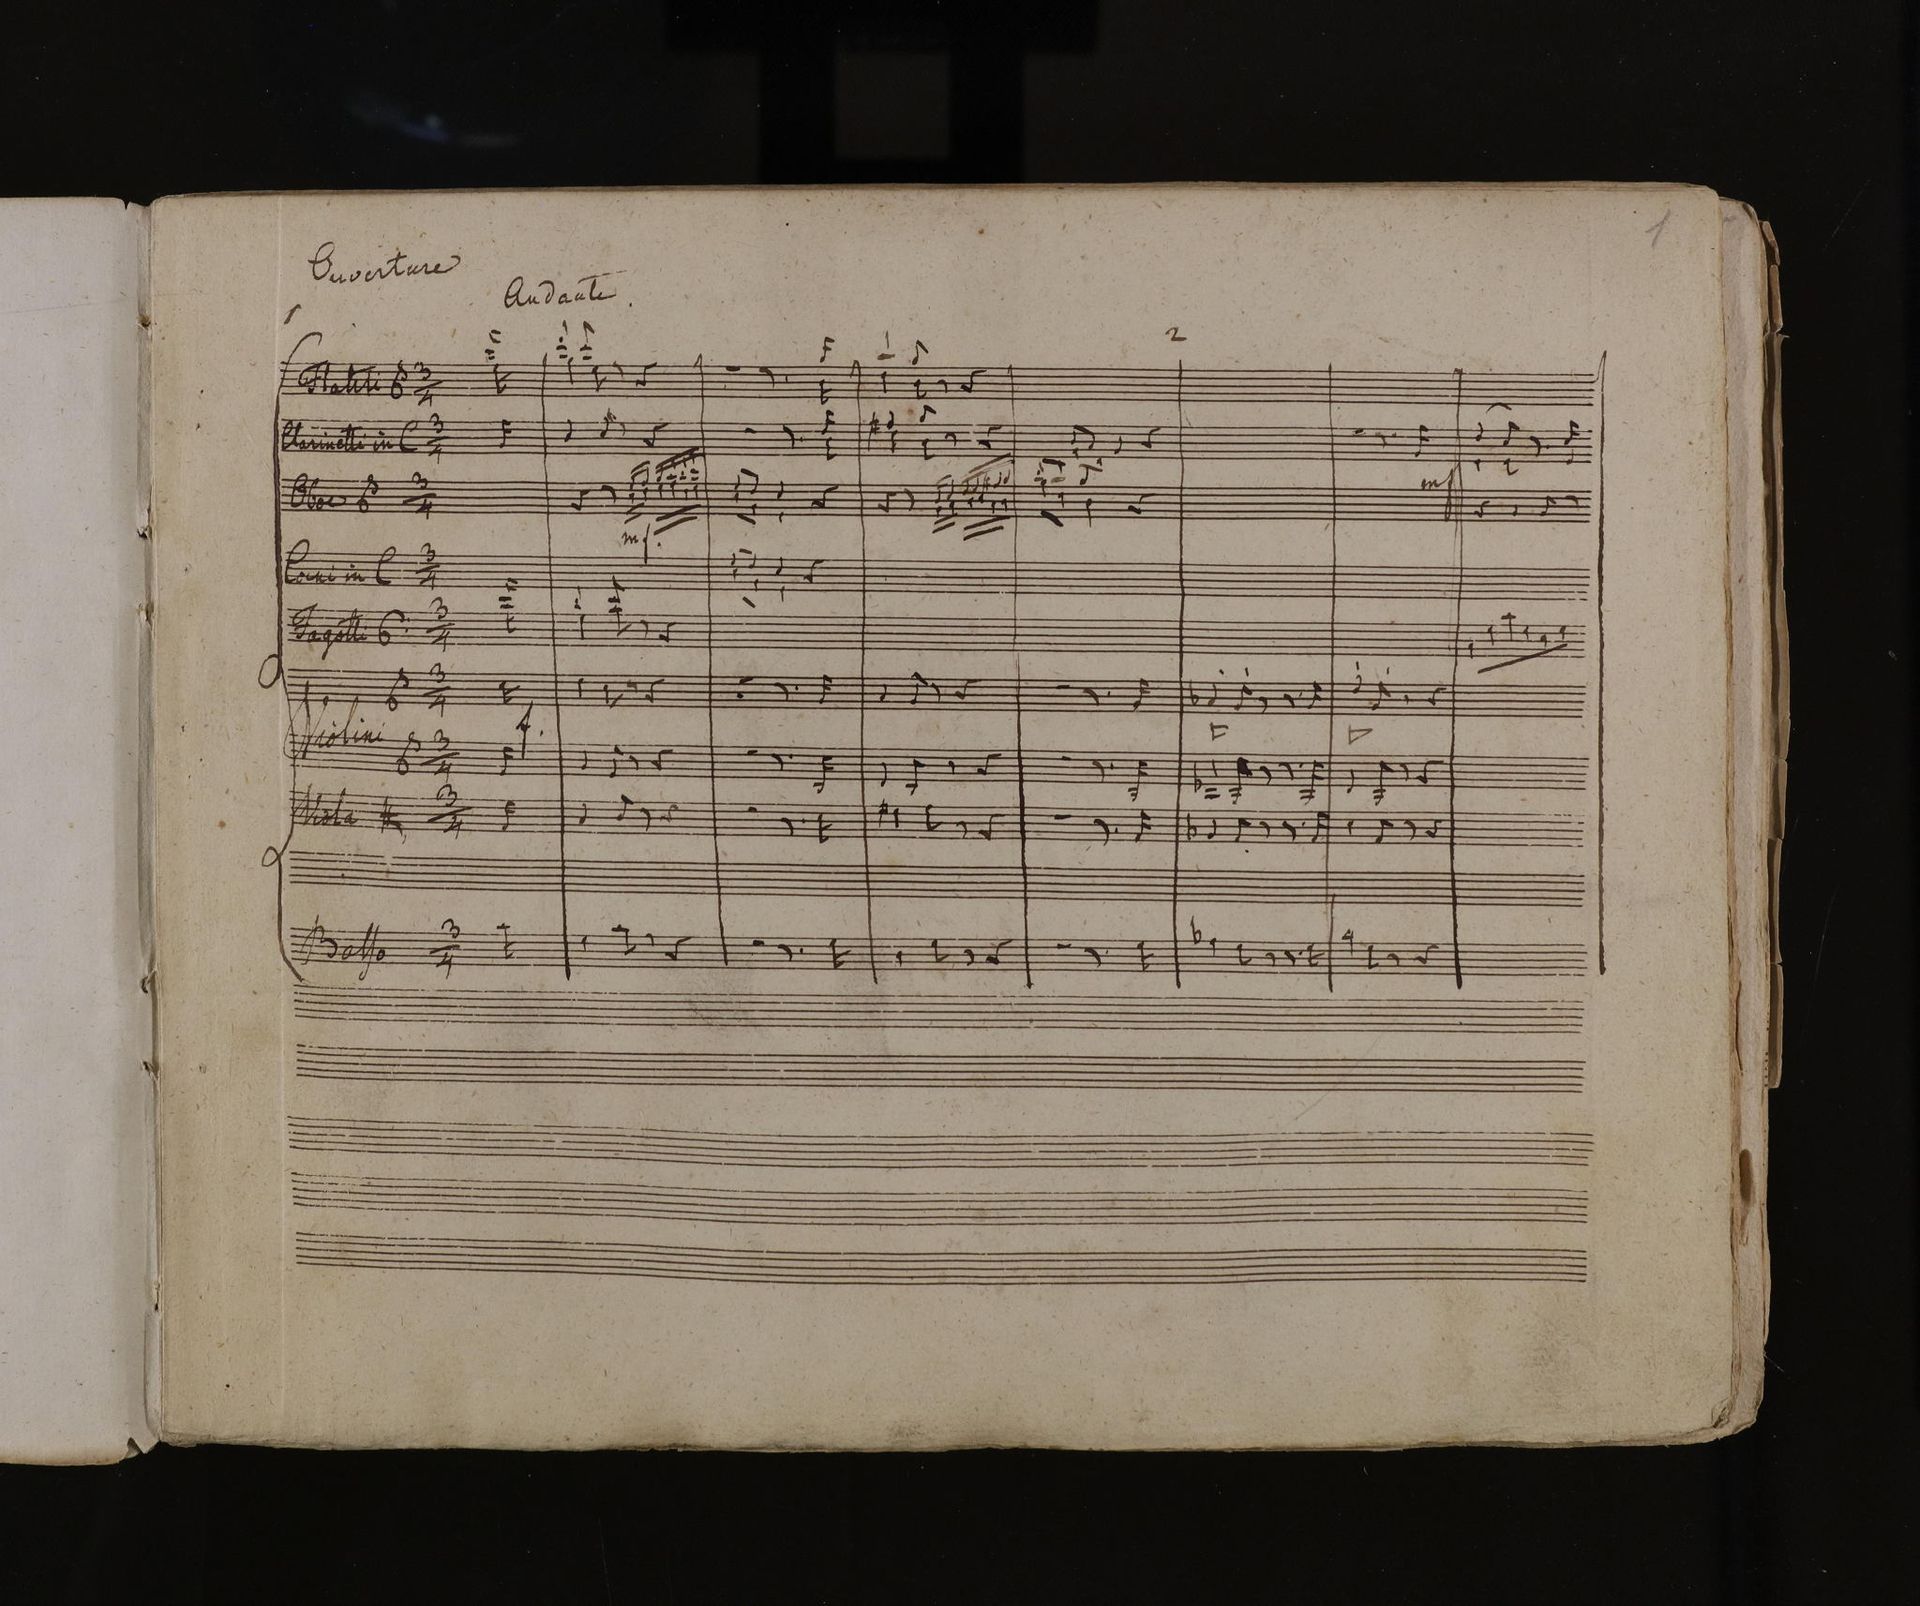 1
Ouverture
Andante.
2
Flauti 3/4
Clarinetti in C 3/4
mf
Oboe 3/4
mf.
Corni in C 3/4
Fagotti 3/4
3/4
f.
Violini
3/4
Viola 3/4
Basso 3/4